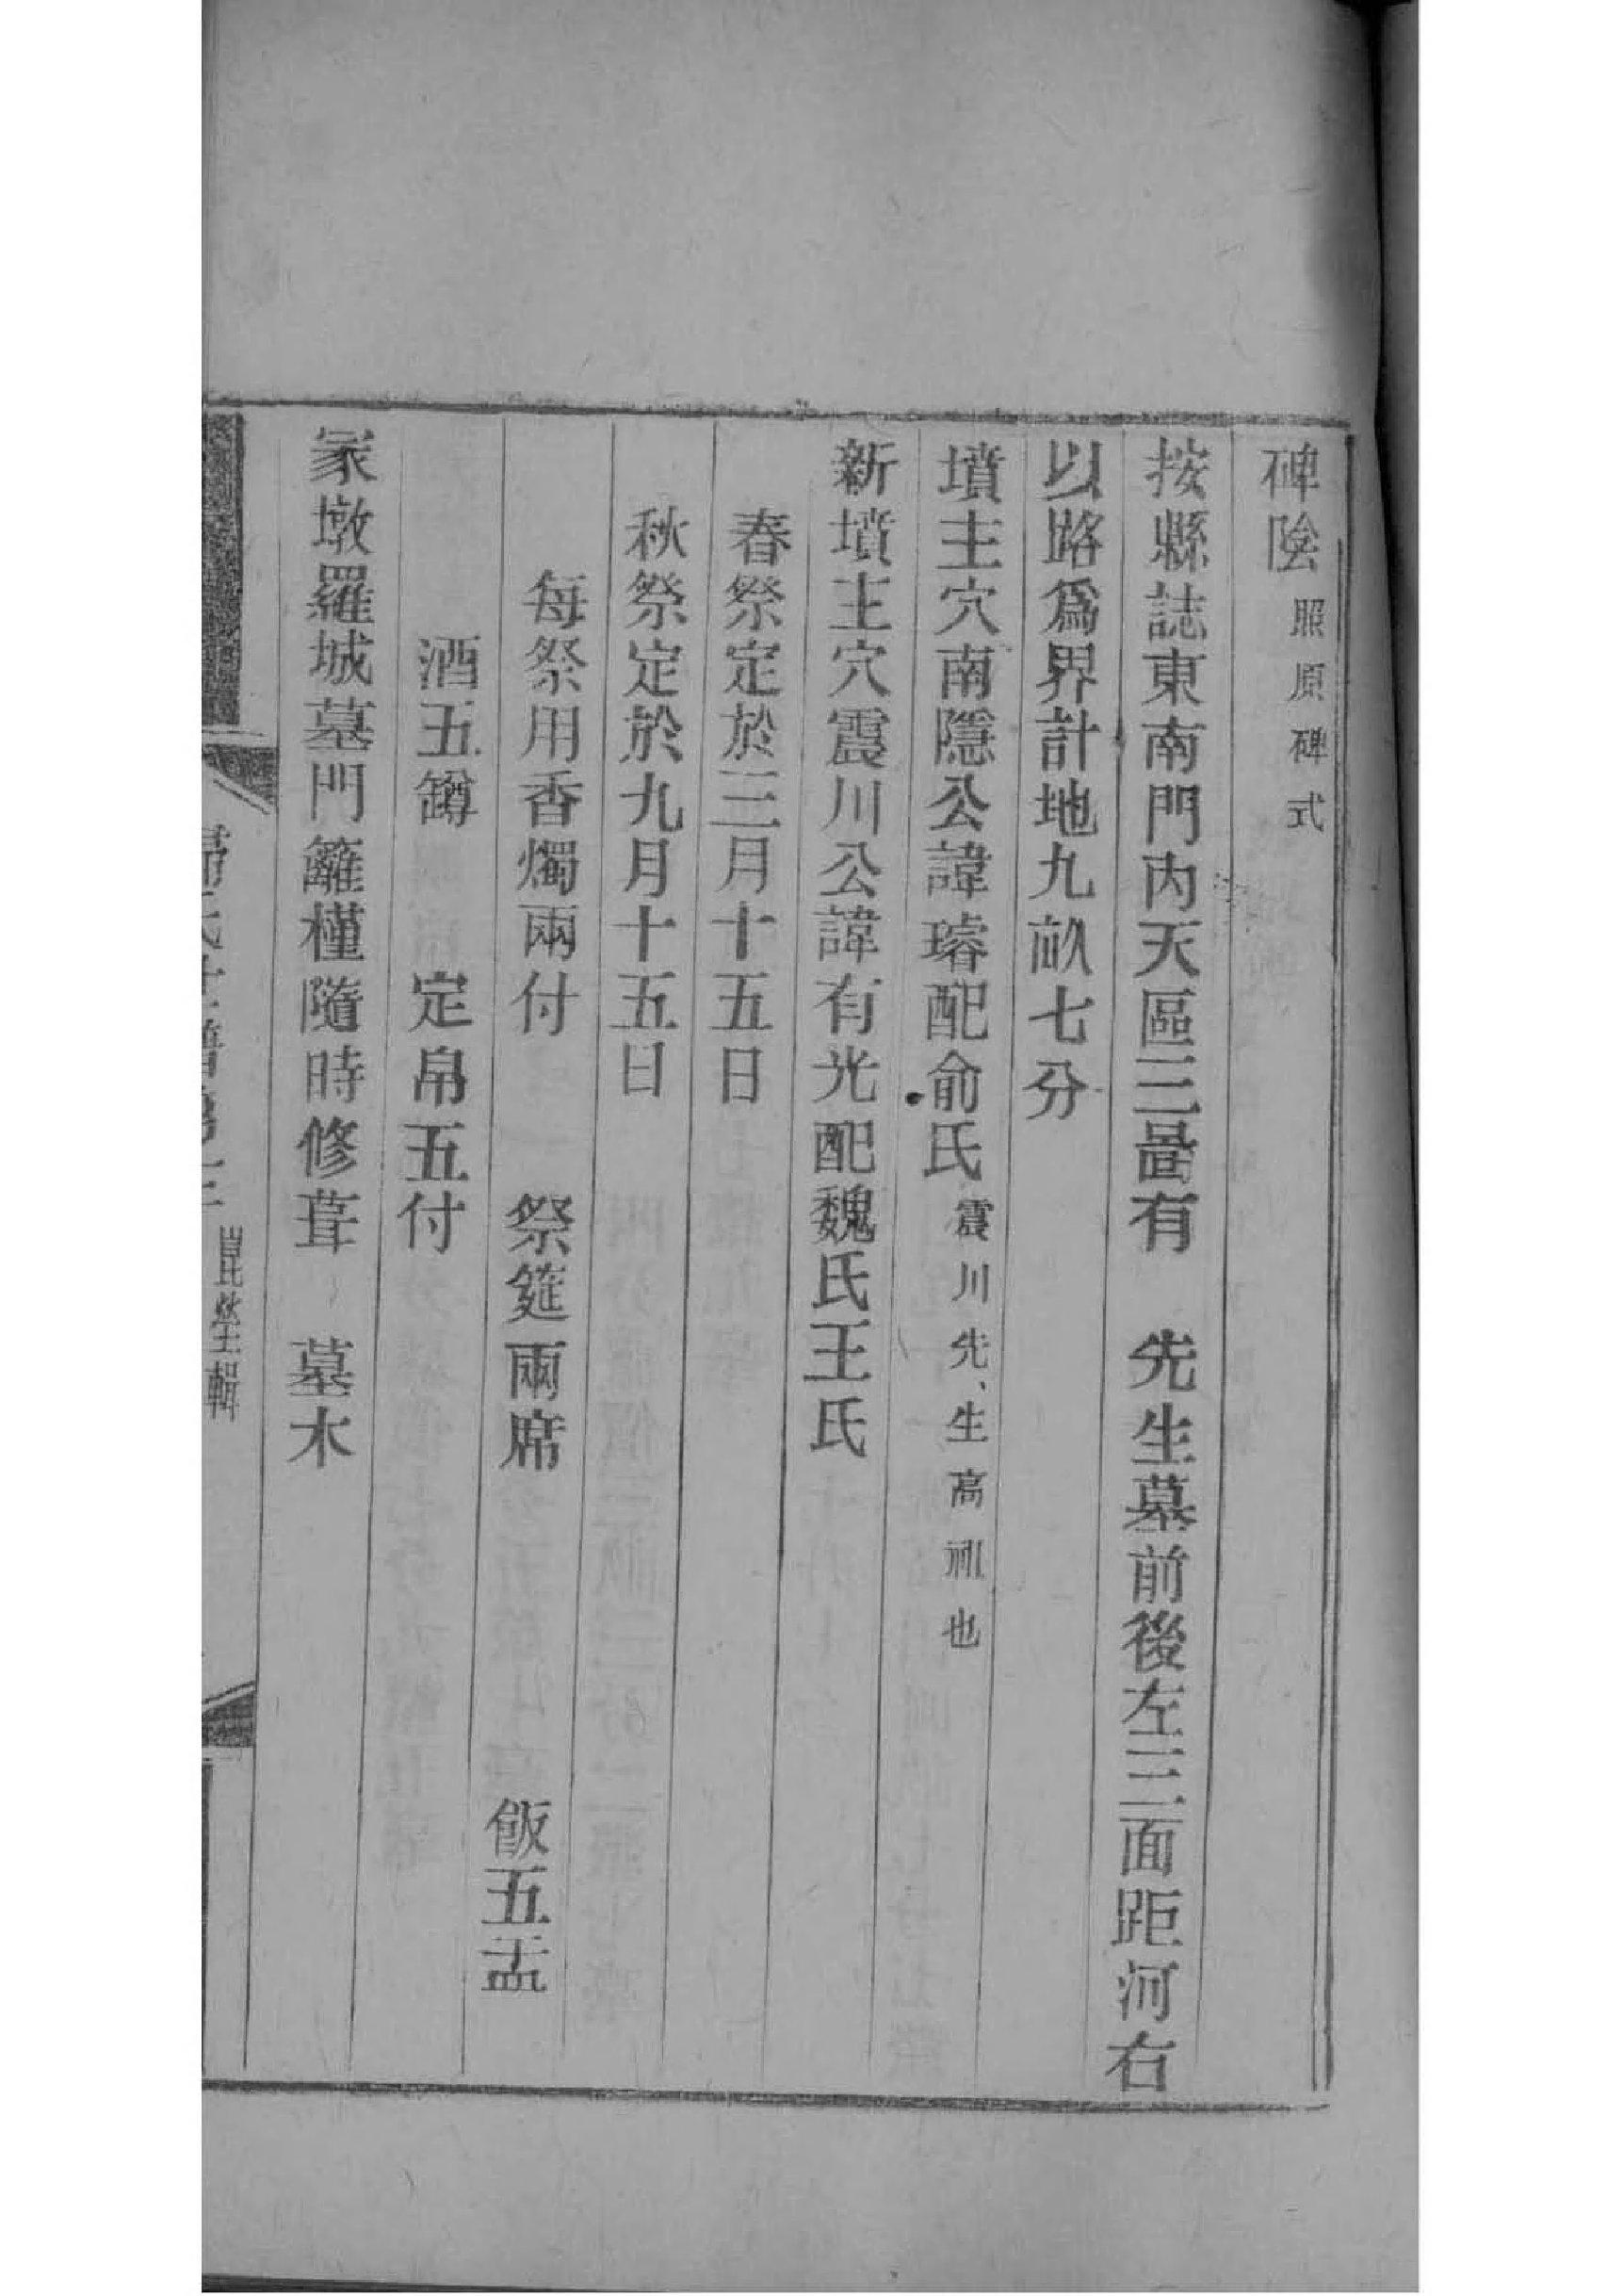 碑陰 照原碑式
按縣誌東南門內天區三啚有 先生墓前後左三面距河右
以路爲界計地九畝七分
墳主穴南隱公諱璿配俞氏 震川先生高祖也
新墳主穴震川公諱有光配魏氏王氏
春祭定於三月十五日
秋祭定於九月十五日
每祭用香燭兩付 祭筵兩席 飯五盂
酒五罇 定帛五付
冢墩羅城墓門籬槿隨時修葺 墓木